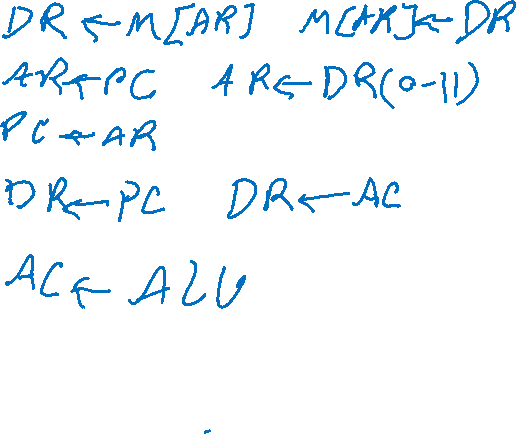 DR ← M[AR] M[AR] ← DR
AR ← PC AR ← DR(0-11)
PC ← AR
DR ← PC DR ← AC
AC ← ALU